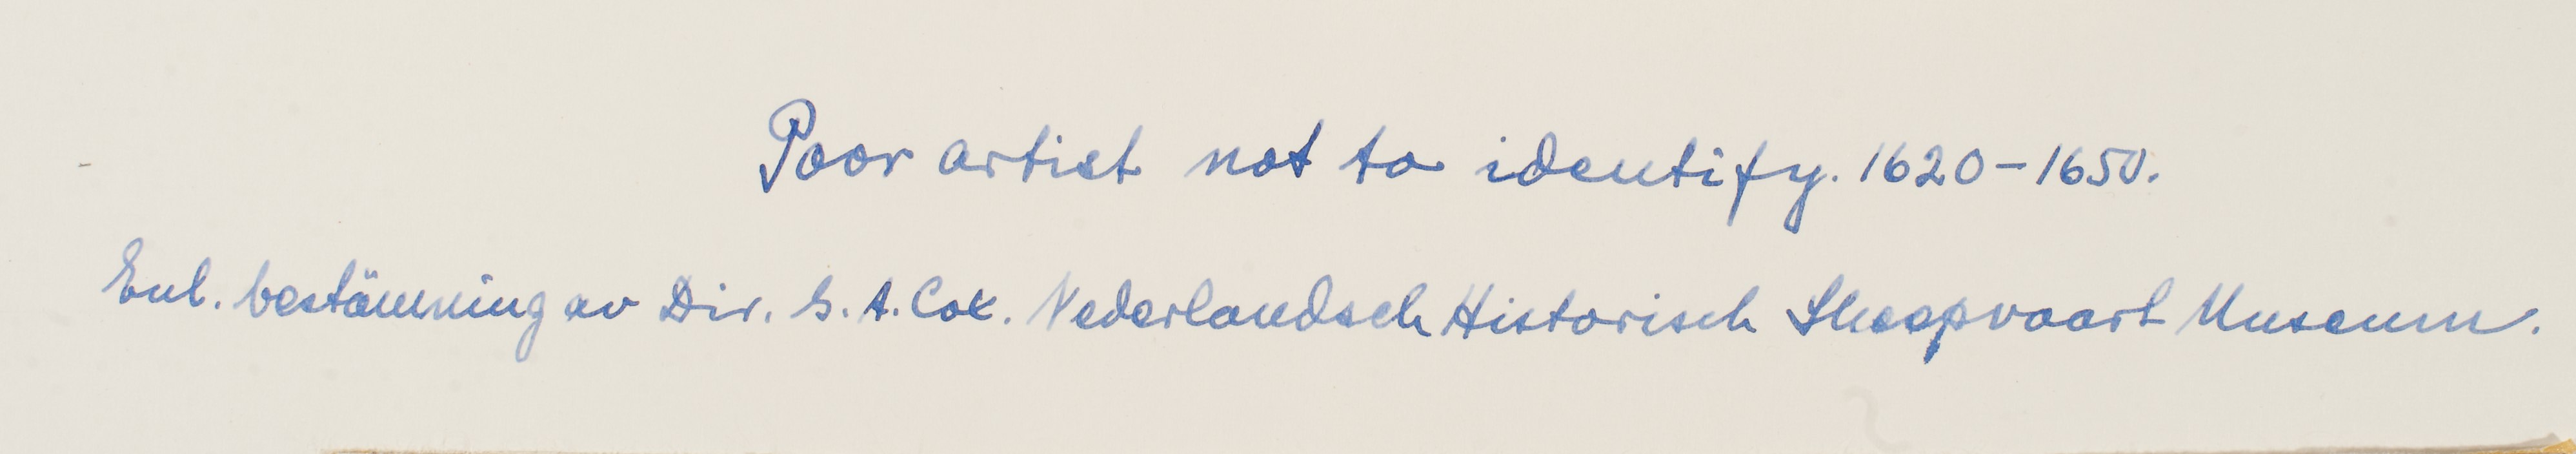 Poor artist not to identify. 1620-1650.
Enl. bestämning av Dir. G. A. Cox. Nederlandsch Historisch Sheepvaart Museum.